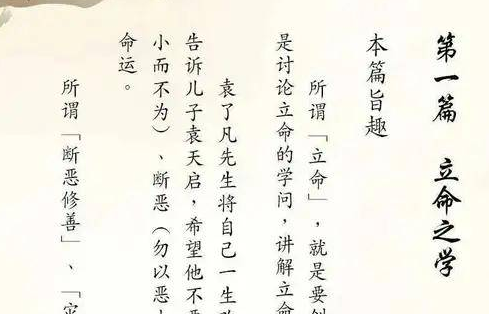 第一篇 立命之学
本篇旨趣
所谓「立命」，就是要创
是讨论立命的学问，讲解立命
袁了凡先生将自己一生改
告诉儿子袁天启，希望他不
小而不为）、断恶（勿以恶小
命运。
所谓「断恶修善」、「灾